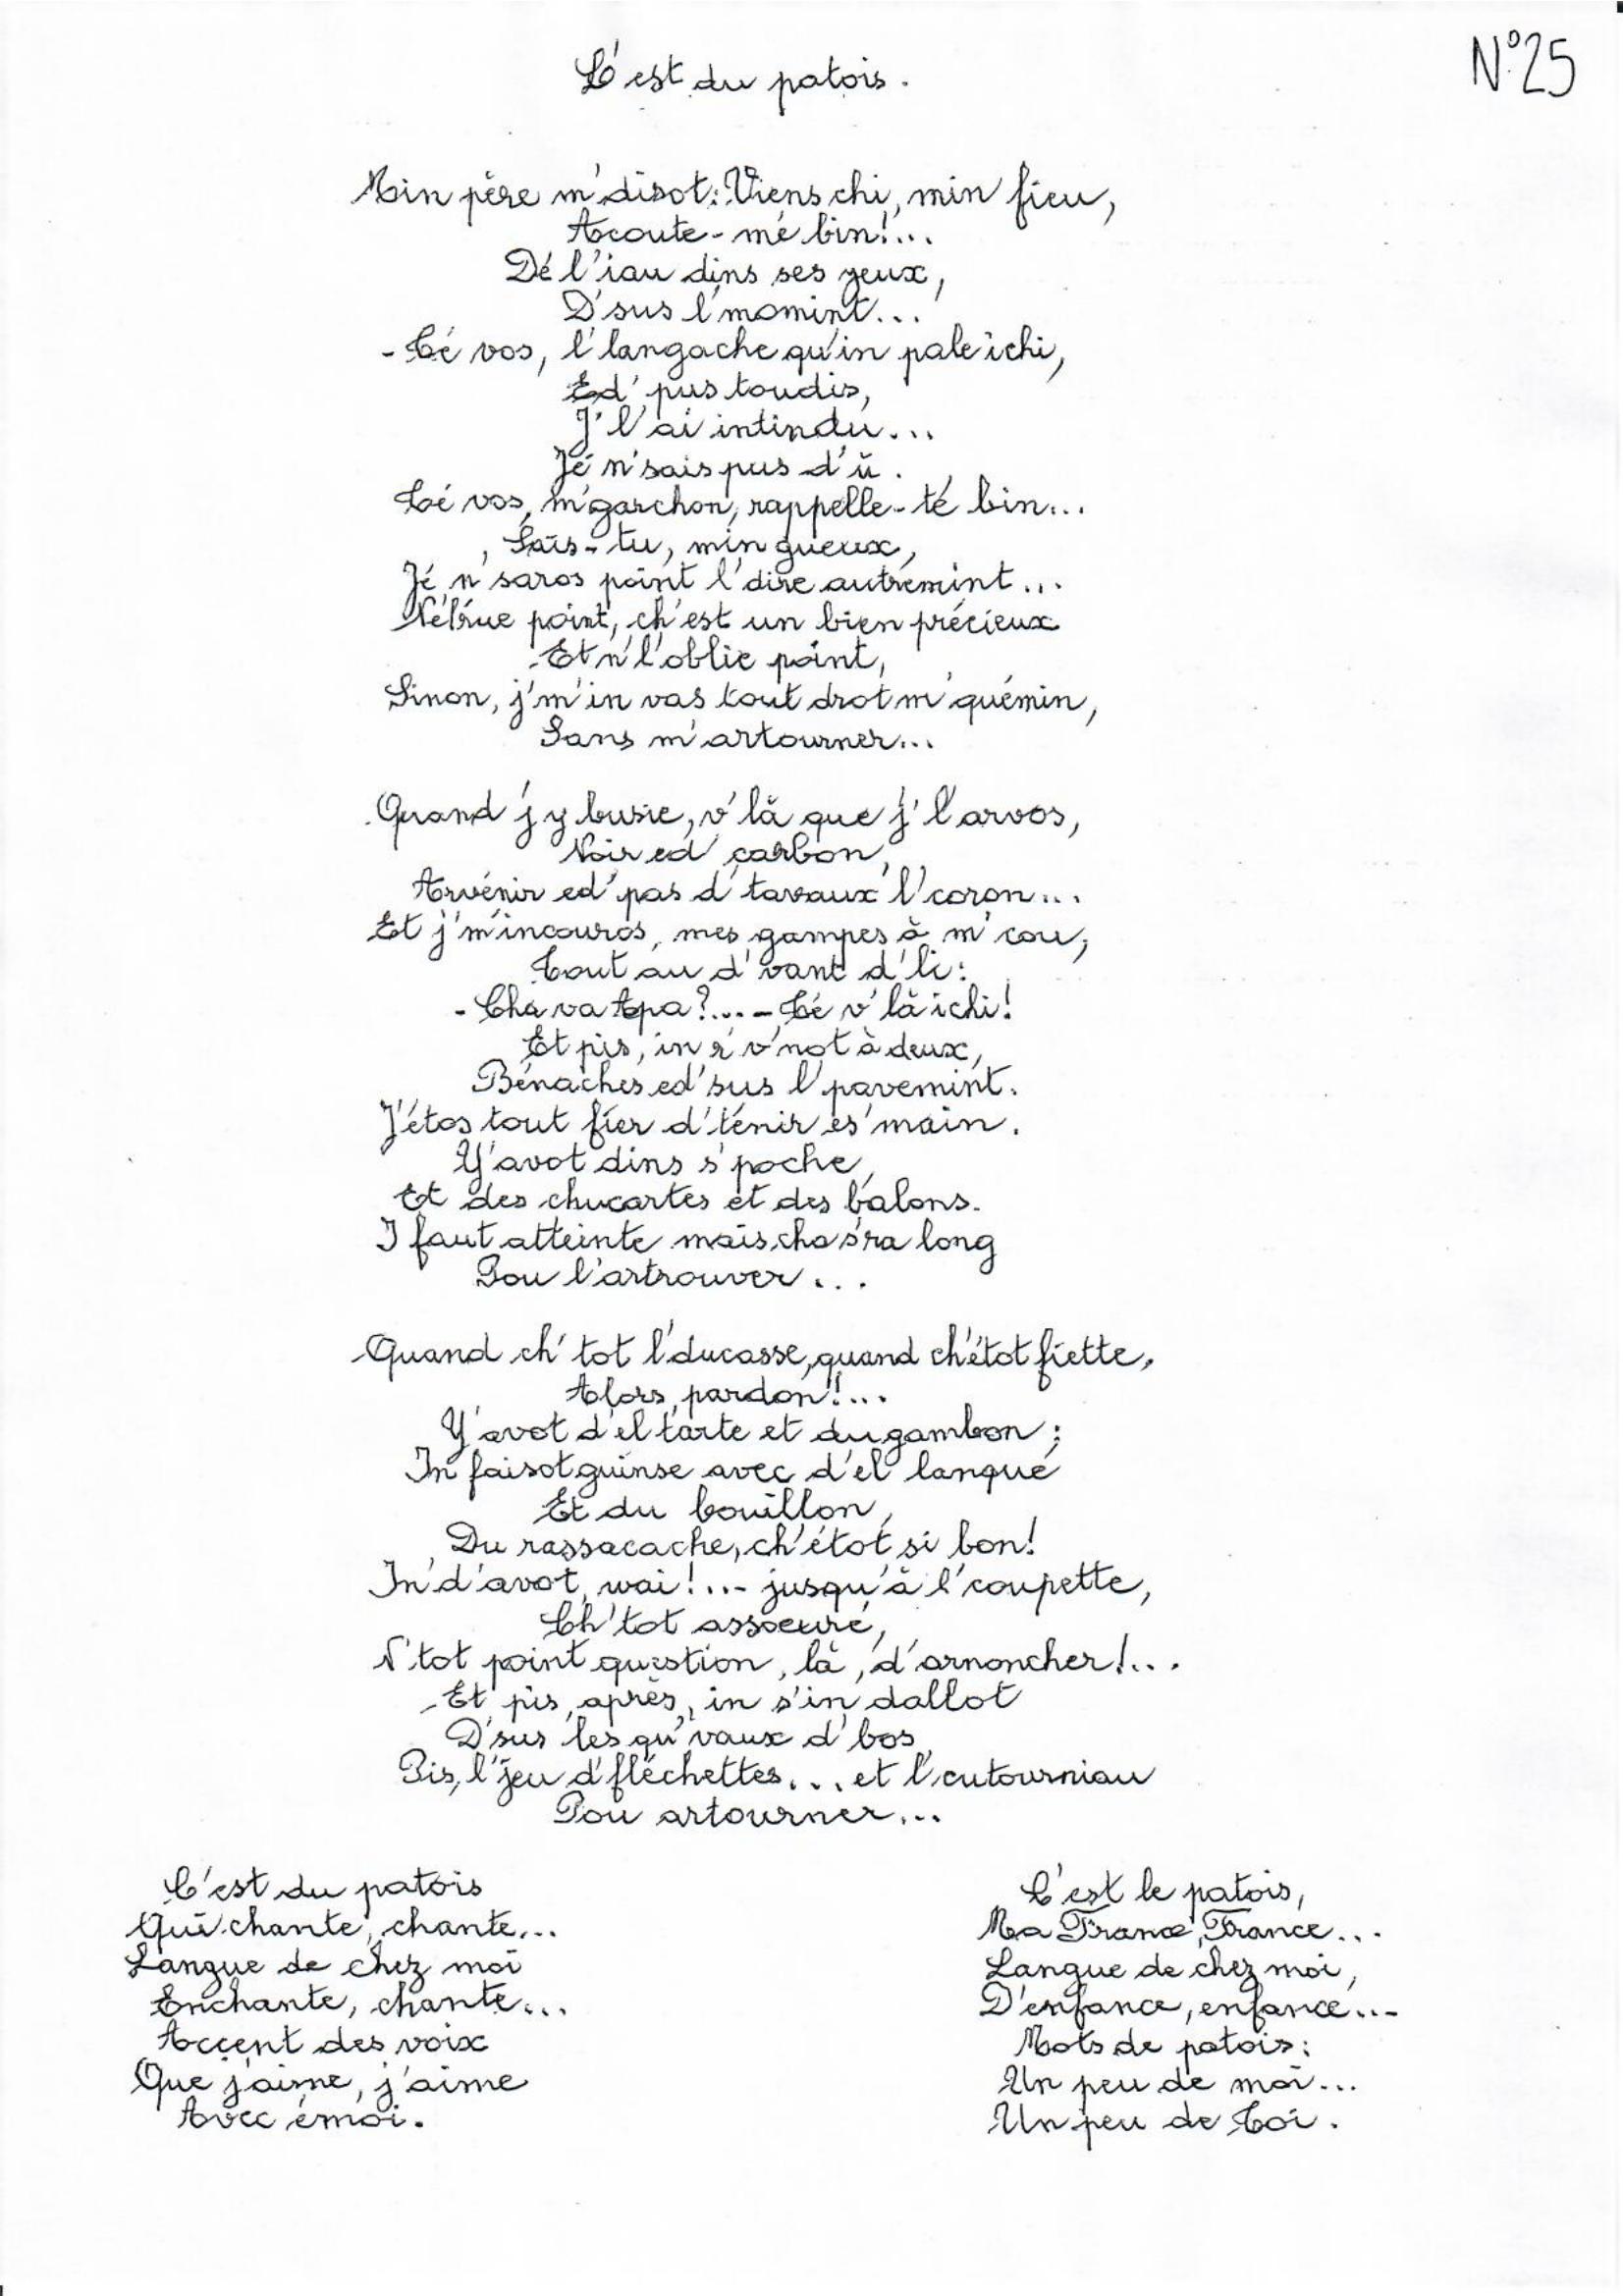 N°25
C'est du patois.
Min père m'disot: Viens chi, min fieu,
Acoute-mé bin!...
Dé l'iau dins ses yeux,
D'sus l'momint...
- Té vos, l'langache qu'in pale ichi,
Ed' pus toudis,
J'l'ai intindu...
Jé n'sais pus d'ù.
Té vos, m'garchon, rappelle-té bin...
Sais-tu, min gueux,
Jé n'saros point l'dire autrémint...
point, ch'est un bien précieux
Et n'l'oblie point,
Sinon, j'm'in vas tout drot m'quémin,
Sans m'artourner...
Quand j'y busie, v'là que j'l'arvos,
Noir ed' carbon,
Arvénir ed' pas d'tavaux l'coron...
Et j'm'incouros, mes gampes à m'cou,
Tout au d'vant d'li:
- Cha va Apa?... - Té v'là ichi!
Et pis, in r'v'not à deux,
Bénaches ed'sus l'pavemint.
J'étos tout fier d'ténir es'main.
Y'avot dins s'poche,
Et des chucartes et des balons.
I faut atteinte mais cha s'ra long
Pou l'artrouver...
Quand ch'tot l'ducasse, quand ch'étot fiette,
Alors, pardon!...
Y'avot d'el tarte et du gambon;
In faisot guinse avec d'el langue
Et du bouillon,
Du rassacache, ch'étot si bon!
In'd'avot, wai!... jusqu'à l'coupette,
Ch'tot assoeuré,
N'tot point question, là, d'arnoncher!...
Et pis, après, in s'in dallot
D'sus les qu'vaux d'bos
Pis, l'jeu d'fléchettes... et l'cutourniau
Pou artourner...
C'est du patois
Qui chante, chante...
Langue de chez moi
Enchante, chante...
Accent des voix
Que j'aime, j'aime
Avec émoi.
C'est le patois,
Ma France, France...
Langue de chez moi,
D'enfance, enfance...
Mots de patois:
Un peu de moi...
Un peu de Toi.